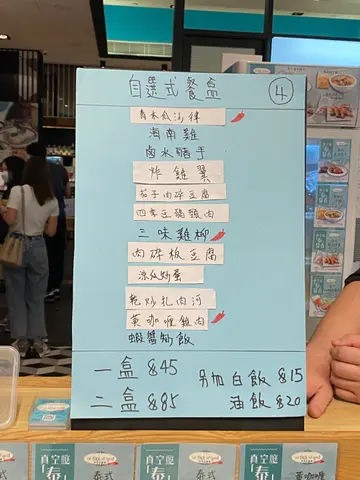 自選式餐盒 ④
青木瓜沙律
海南雞
鹵水腊手
炸雞翼
茄子肉碎豆腐
四季豆豬頸肉
三味雞柳
肉碎板豆腐
涼瓜炒蛋
乾炒扎肉河
黃咖喱雞肉
蝦醬炒飯
一盒 $45
二盒 $85
另加白飯 $15
油飯 $20
真空脆
「泰」
泰式
真空脆
「泰」
泰式
真空脆
「泰」
黃咖喱